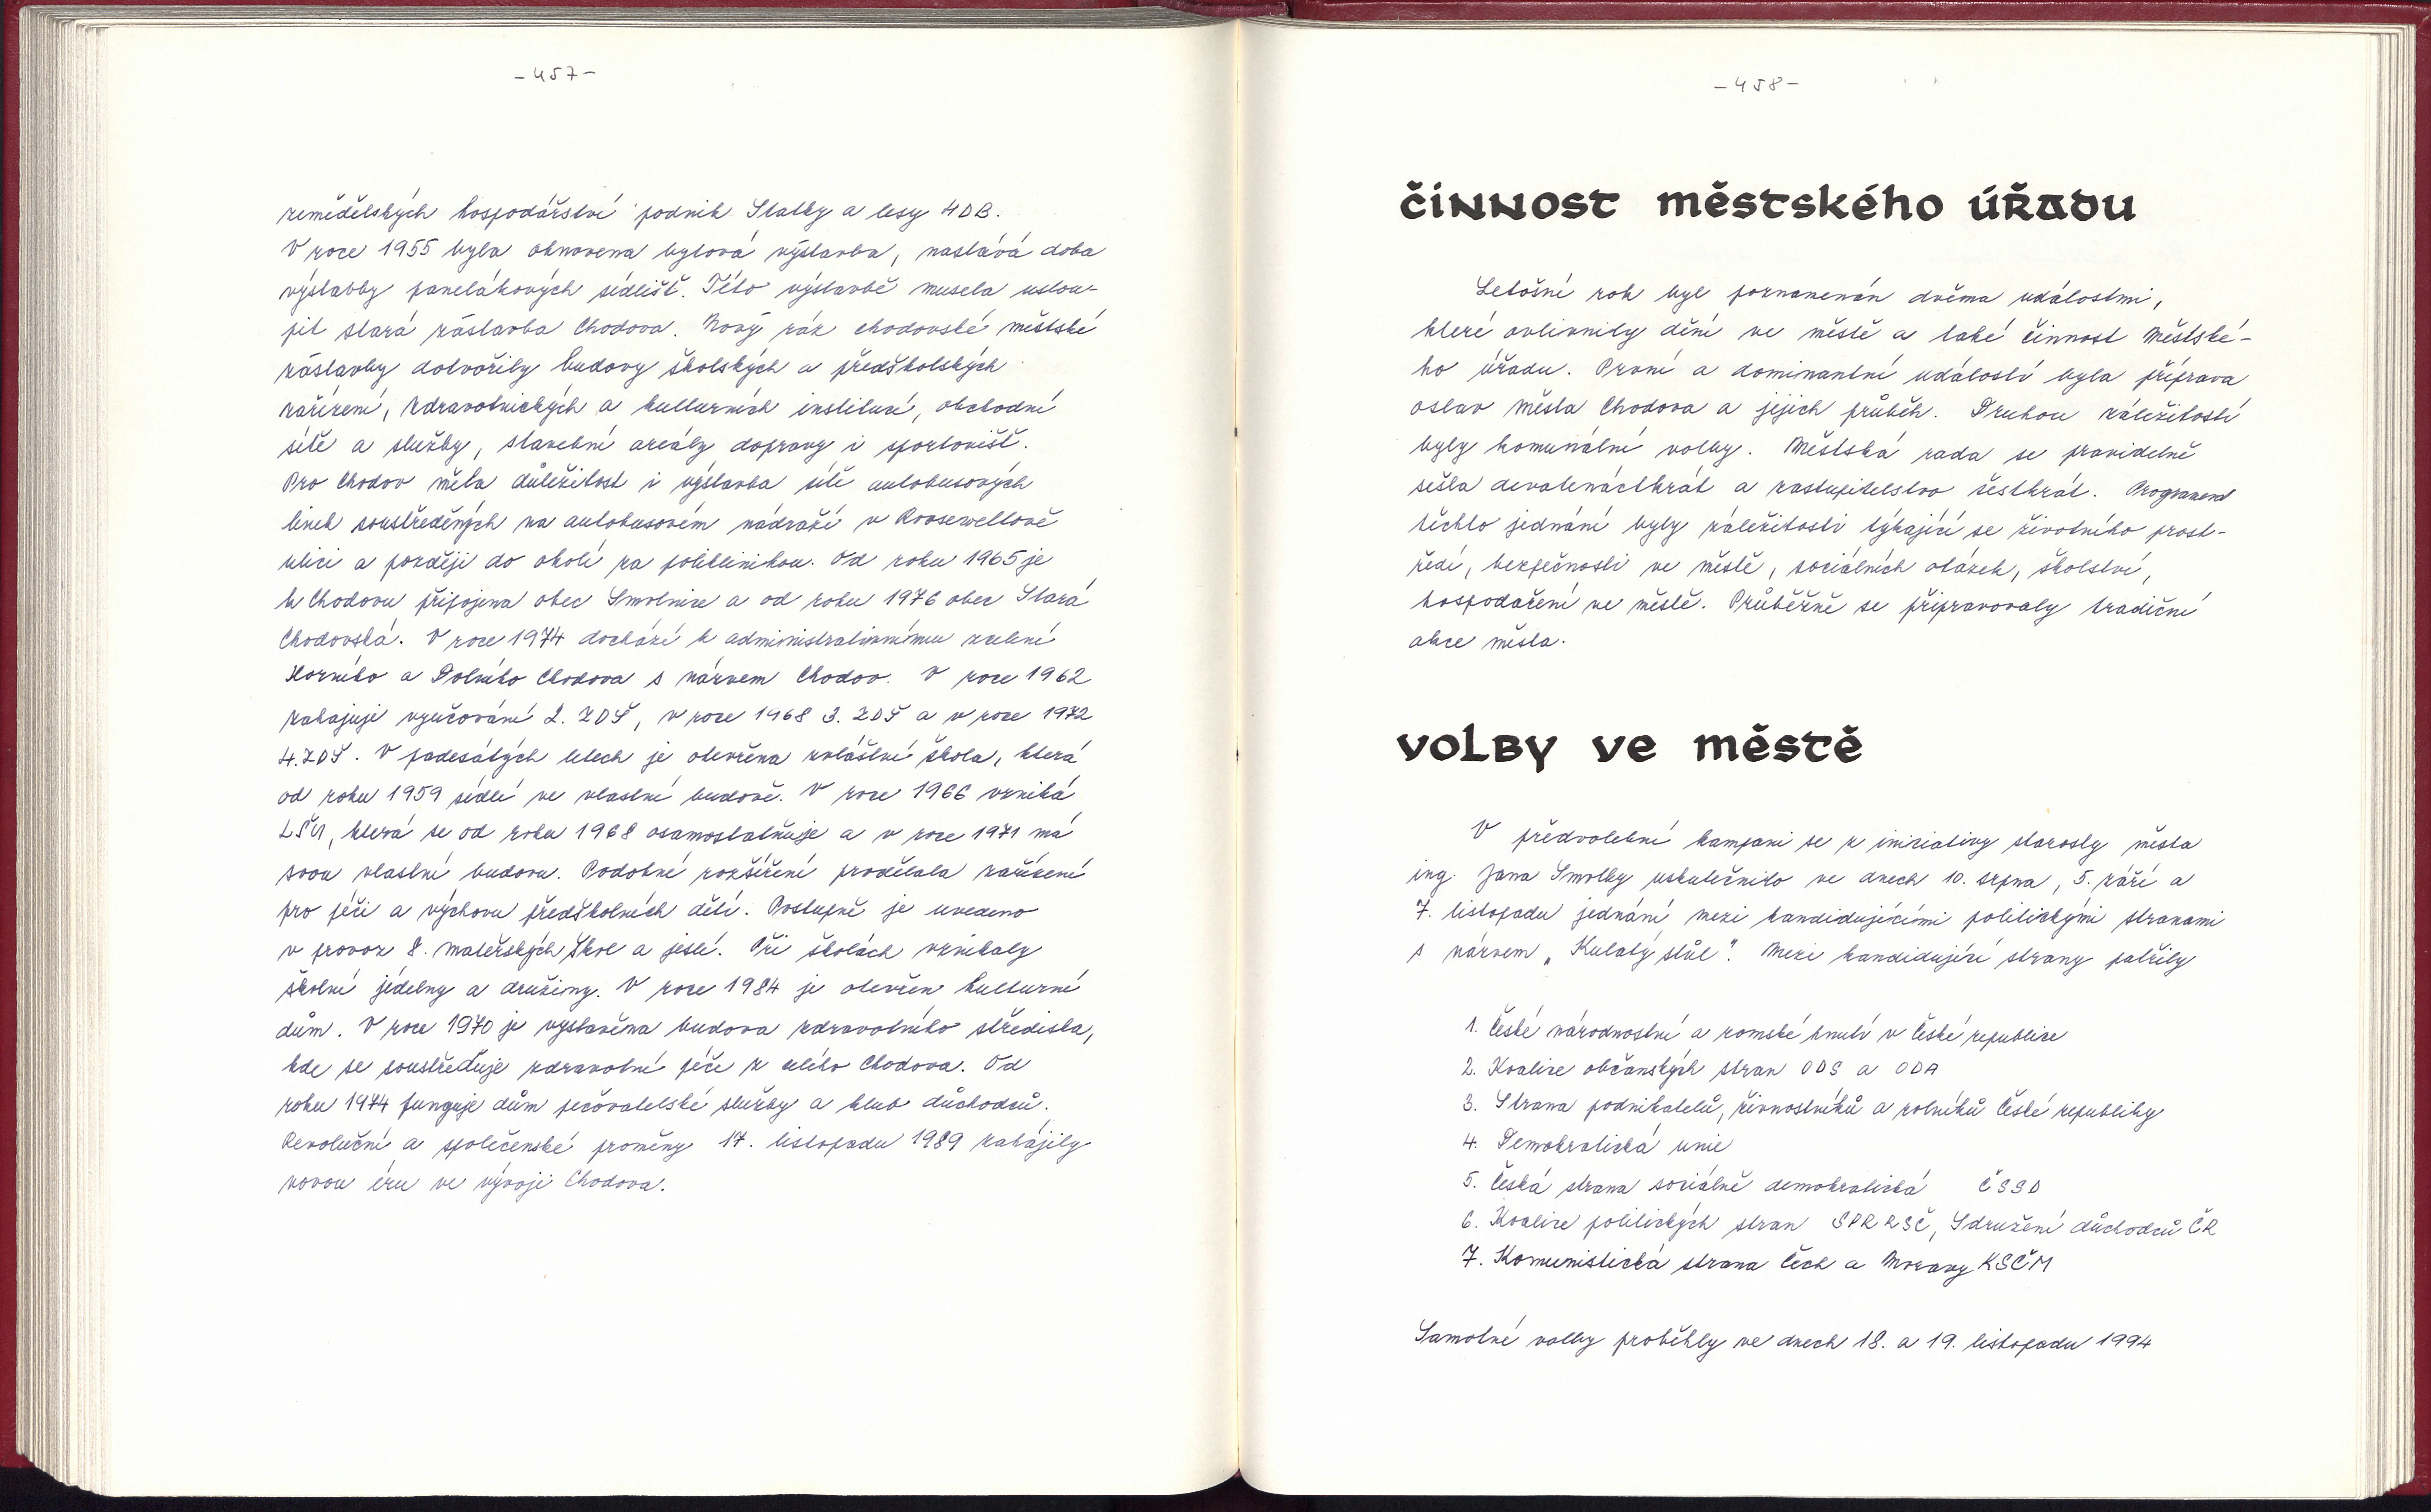 -457-
zemědělských hospodářství podnik Statky a lesy HDB.
V roce 1955 byla obnovena bytová výstavba, nastává doba
výstavby panelákových sídlišť. Této výstavbě musela ustou-
pit stará zástavba Chodova. Nový ráz chodovské městské
zástavby dotvořily budovy školských a předškolských
zařízení, zdravotnických a kulturních institucí, obchodní
sítě a služby, stavební areály dopravy i sportovišť.
Pro Chodov měla důležitost i výstavba sítě autobusových
linek soustředěných na autobusovém nádraží v Rooseweltově
ulici a později do okolí za poliklinikou. Od roku 1965 je
k Chodovu připojena obec Smolnice a od roku 1976 obec Stará
Chodovská. V roce 1974 dochází k administrativnímu
Horního a Dolního Chodova s názvem Chodov. V roce 1962
zahajuje vyučování 2. ZDŠ, v roce 1968 3. ZDŠ a v roce 1972
4. ZDŠ. V padesátých letech je otevřena zvláštní škola, která
od roku 1959 sídlí ve vlastní budově. V roce 1966 vzniká
LŠU, která se od roku 1968 osamostatňuje a v roce 1971 má
svou vlastní budovu. Podobné rozšíření prodělala zařízení
pro péči a výchovu předškolních dětí. Postupně je uvedeno
v provoz 8. mateřských škol a jeslí. Při školách vznikaly
školní jídelny a družiny. V roce 1984 je otevřen kulturní
dům. V roce 1970 je vystavěna budova zdravotního střediska,
kde se soustřeďuje zdravotní péče z celého Chodova. Od
roku 1974 funguje dům pečovatelské služby a klub důchodců.
Revoluční a společenské proměny 17. listopadu 1989 zahájily
novou éru ve vývoji Chodova.
-458-
činnost městského úřadu
Letošní rok byl poznamenán dvěma událostmi,
které ovlivnily dění ve městě a také činnost Městské-
ho úřadu. První a dominantní událostí byla příprava
oslav města Chodova a jejich průběh. Druhou záležitostí
byly komunální volby. Městská rada se pravidelně
sešla dvacetkrát a zastupitelstvo šestkrát. Programem
těchto jednání byly záležitosti týkající se životního prost-
ředí, bezpečnosti ve městě, sociálních otázek, školství,
hospodaření ve městě. Průběžně se připravovaly tradiční
akce města.
volby ve městě
V předvolební kampani se z iniciativy starosty města
ing. Jana Smolky uskutečnilo ve dnech 10. srpna, 5. září a
7. listopadu jednání mezi kandidujícími politickými stranami
s názvem „Kulatý stůl". Mezi kandidující strany patřily
1. České národnostní a romské hnutí v České republice
2. Koalice občanských stran ODS a ODA
3. Strana podnikatelů, živnostníků a rolníků České republiky
4. Demokratická unie
5. Česká strana sociálně demokratická ČSSD
6. Koalice politických stran SPR RSČ, Sdružení důchodců ČR
7. Komunistická strana Čech a Moravy KSČM
Samotné volby proběhly ve dnech 18. a 19. listopadu 1994